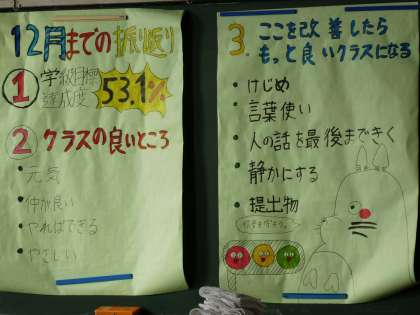 12月までの振り返り
1 学級目標
達成度 53.1%
2 クラスの良いところ
・元気
・仲が良い
・やればできる
・やさしい
3. ここを改善したら
もっと良いクラスになる
・けじめ
・言葉使い
・人の話を最後まできく
・静かにする
・提出物